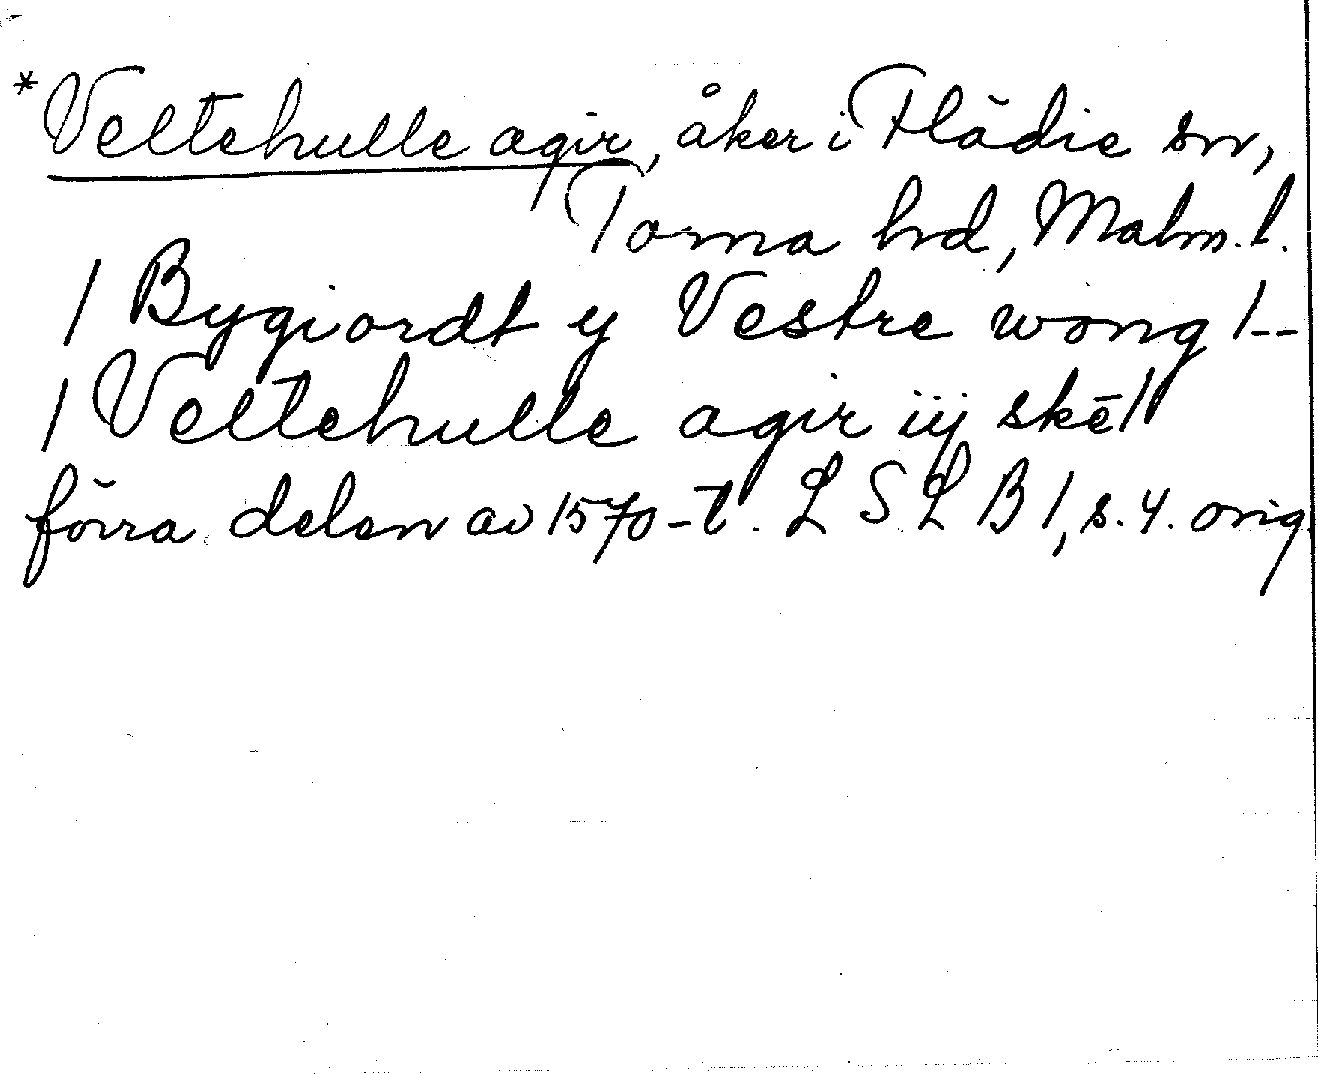 *Veltehulle agir, åker i Flädie sn,
Torna hrd, Malm.l.
/ Bygiordt y Vestre wong /--
/ Veltehulle agir iij skē/
förra delen av 1570-t. L S L B 1, s. 4. orig.